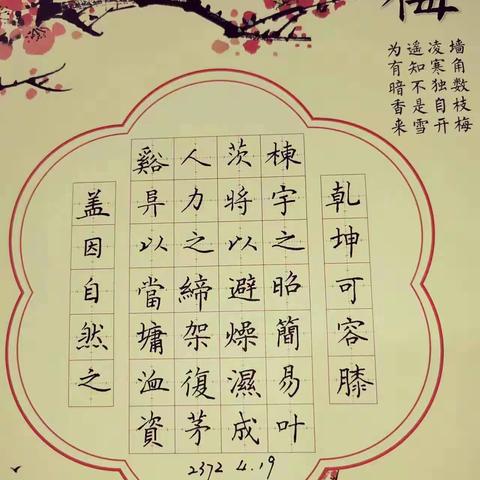 梅
墙角数枝梅
凌寒独自开
遥知不是雪
为有暗香来
乾坤可容膝
棟宇之昭簡易叶
茨將以避燥濕成
人力之締架復茅
谿阜以當墉洫資
盖因自然之
2372 4.19